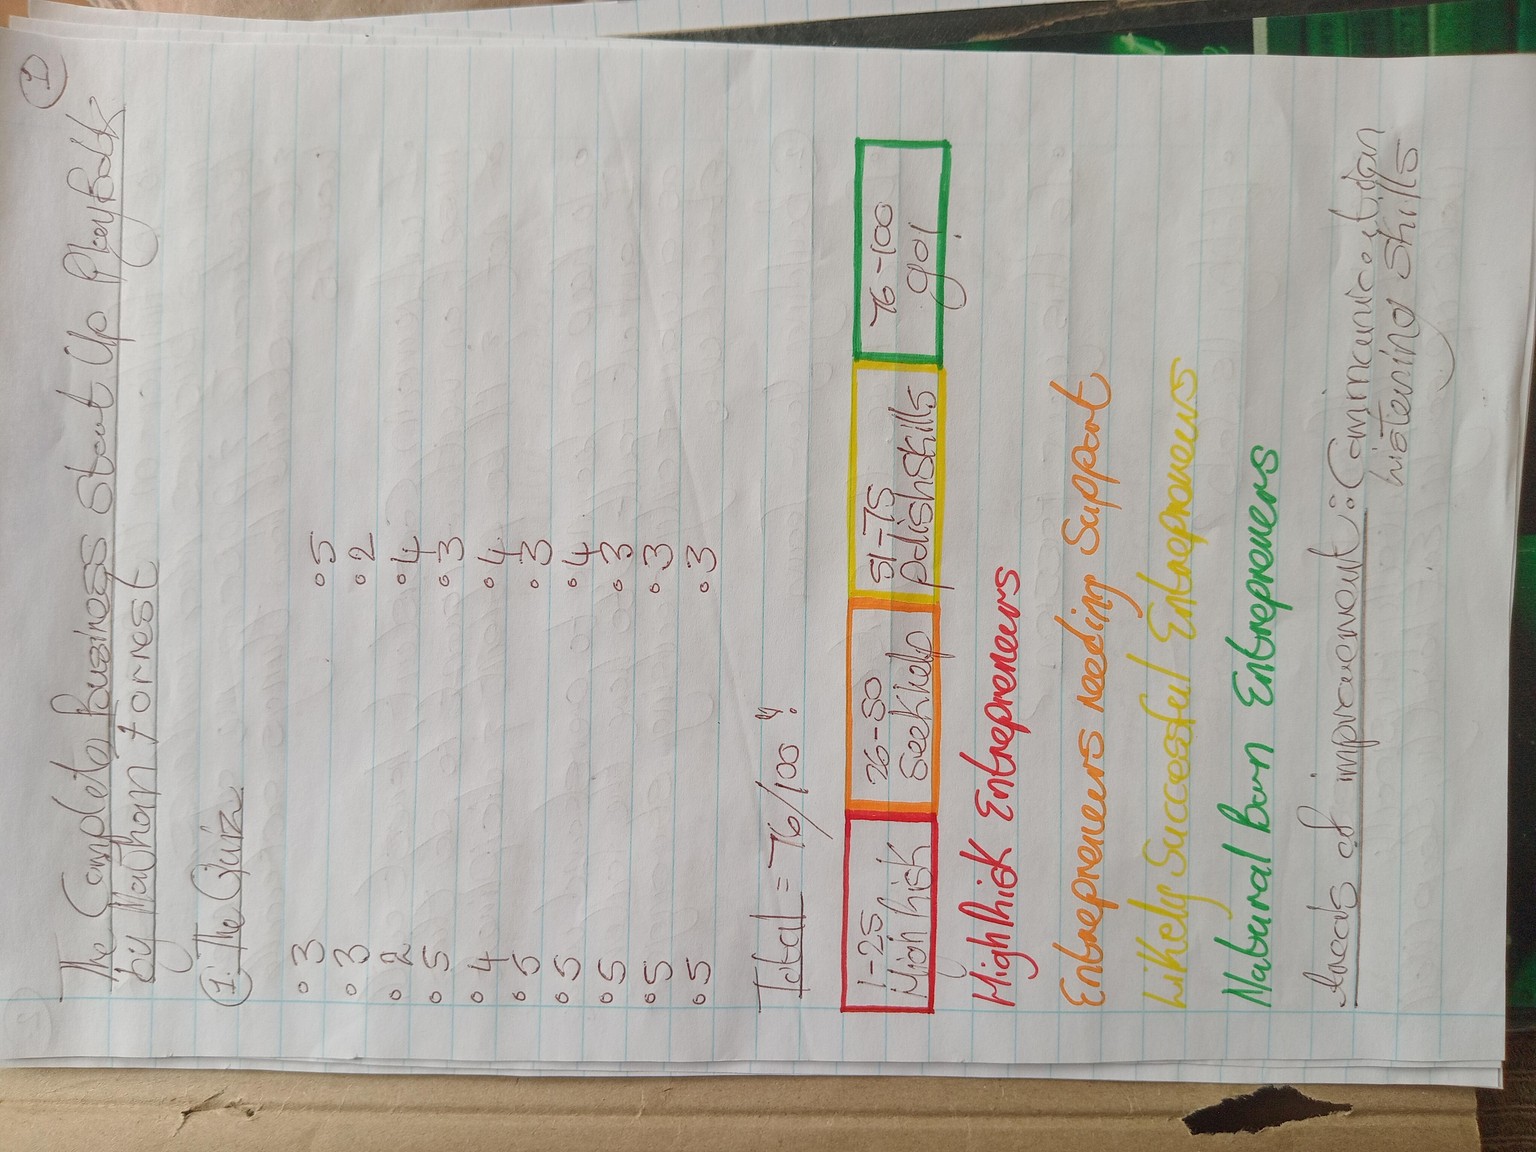 1
The Complete Business Start Up PlayBook
by Nathan Forrest
1. The Quiz
• 3 • 5
• 3 • 2
• 2 • 4
• 5 • 3
• 4 • 4
• 5 • 3
• 5 • 4
• 5 • 3
• 5 • 3
• 5 • 3
Total = 76/100
1-25 26-50 51-75 76-100
High Risk Seek help polish skills go!
High Risk Entrepreneurs
Entrepreneurs needing Support
Likely Successful Entrepreneurs
Natural Born Entrepreneurs
Areas of improvement: Communication
Listening skills